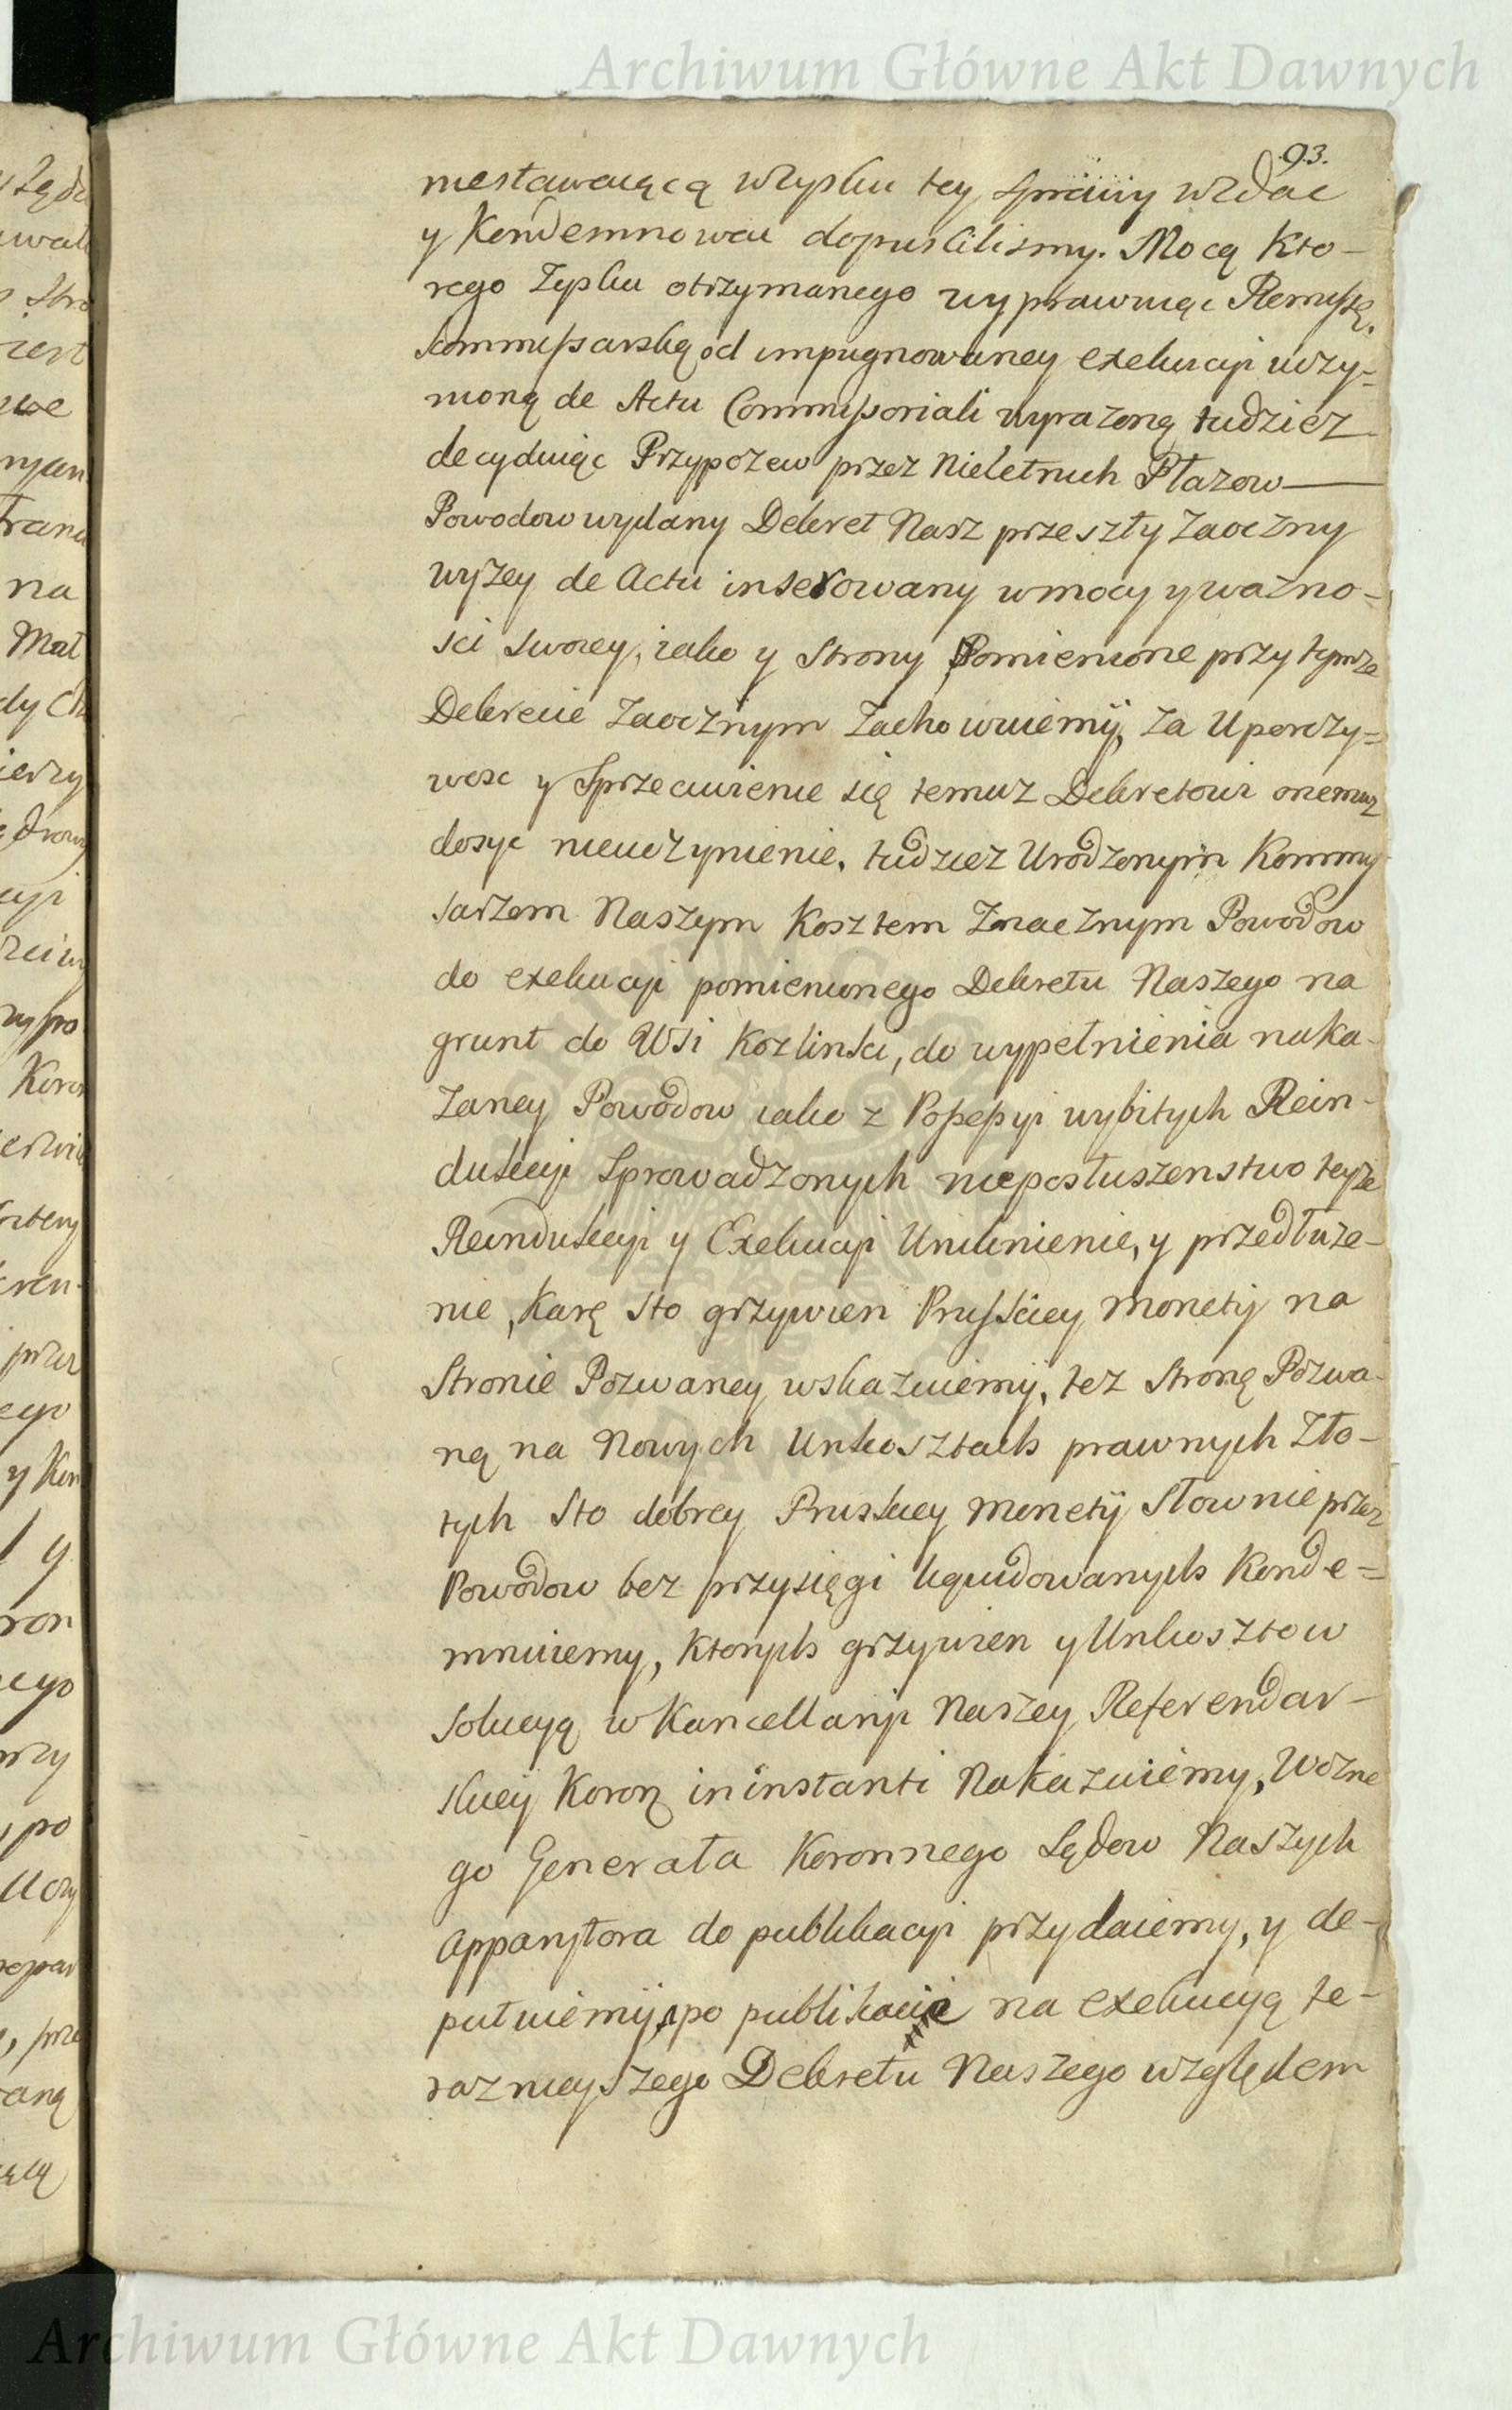 Archiwum Główne Akt Dawnych
93.
niestawaiącą wzysku tey sprawy wzdac
y Kondemnowac dopuscilismy. Mocą Kto-
rego zysku otrzymanego wyprawuiąc Remissę
Kommissarską od impugnowaney exekucyi uczy-
nioną de Actu Commissoriali wyrazoną tudziez
decyduiąc Przypozew przez Nieletnich Płazow
Powodow wydany Dekret Nasz przeszły zaoczny
wyzey de Actu inserowany w mocy y wazno-
sci swoiey, iako y Strony Pomienione przy tymze
Dekrecie zaocznym zachowuiemy, za Uporczy-
wosc y Sprzeciwienie się temuz Dekretowi onemuz
dosyc nieuczynienie, tudziez Urodzonym Kommy
sarzem Naszym Kosztem znacznym Powodow
do exekucyi pomienionego Dekretu Naszego na
grunt do Wsi Kozlinki, do wypełnienia naka-
zaney Powodow iako z Possessyi wybitych Rein-
dukcyi Sprowadzonych nieposłuszenstwo teyze
Reindukcyi y Exekucyi Uniknienie, y przedłuze-
nie, Karę sto grzywien Pruskiey monety na
Stronie Pozwaney wskazuiemy, tez Stronę Pozwa-
ną na Nowych Unkosztach prawnych Zło-
tych Sto dobrey Pruskiey monety Słownie przez
Powodow bez przysięgi likwidowanych Konde=
mnuiemy, Ktorych grzywien y Unkosztow
Solucyą w Kancellaryi Naszey Referendar-
skiey Koron in instanti Nakazuiemy, Wozne
go Generała Koronnego Sądow Naszych
Apparytora do publikacyi przydaiemy, y de-
putuiemy, a po publikacie na exekucyą te-
raznieyszego Dekretu Naszego względem
Archiwum Główne Akt Dawnych